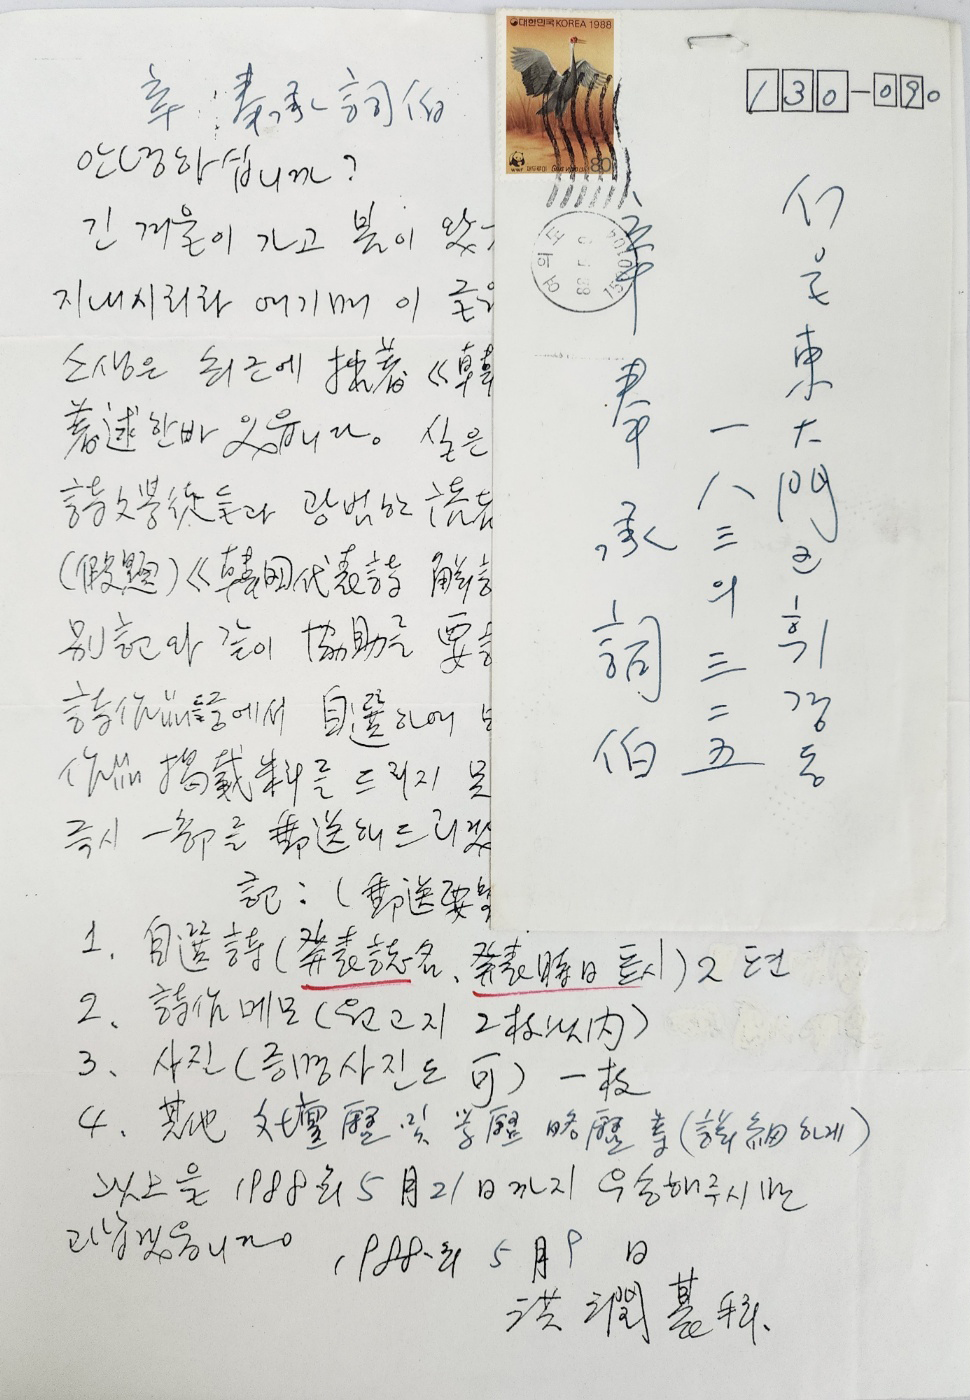 辛 奉承 詞伯
안녕하십니까?
긴 겨울이 가고 봄이 왔
지내시리라 여기며 이 글
소생은 최근에 拙著 《韓
著述한바 있읍니다. 실은
詩文學徒들과 광범한 讀者
(假題)《韓国代表詩 解說
別記와 같이 協助를 要請
詩作品 중에서 自選하여
作品 揭載料를 드리지 못
즉시 一部를 郵送해 드리겠
記 : ( 郵送要望
1. 自選詩(発表誌名、発表時日 표시) 2편
2. 詩作메모(원고지 2枚以内)
3. 사진(증명사진도 可) 一枚
4. 其他 文壇歷 및 学歷 略歷 等(詳細하게)
以上을 1988年 5月 21日까지 우송해주시면
고맙겠읍니다。
1988年 5月 9日
洪潤基 拜.
대한민국 KOREA 1988
WWF
80
여의도
130-090
서울 東大門区 휘경동
一八三의 三二五
辛奉承 詞伯